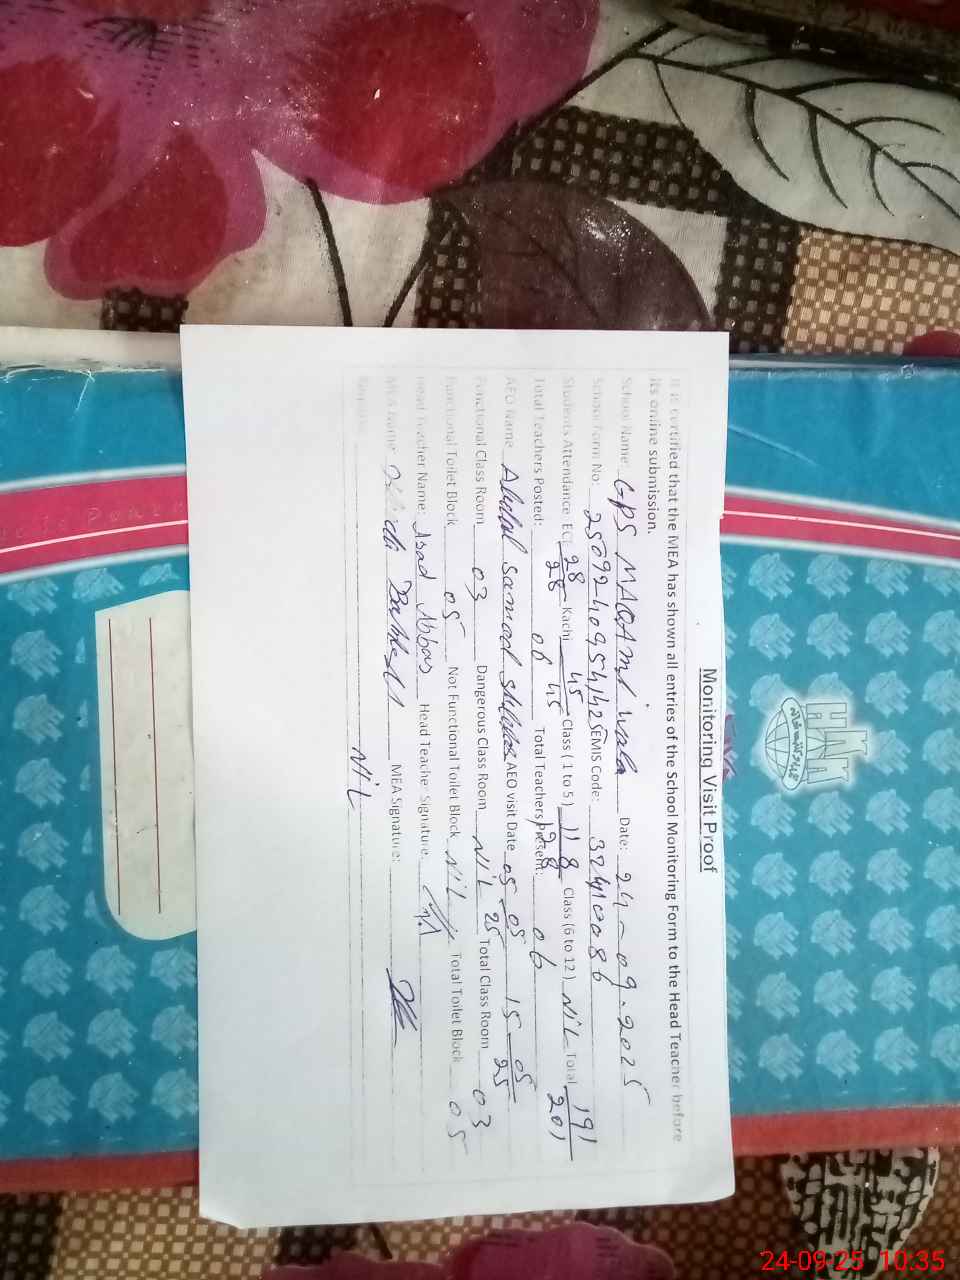 Monitoring Visit Proof
It is certified that the MEA has shown all entries of the School Monitoring Form to the Head Teacher before
its online submission.
School Name: GPS MAQAMI wala Date: 24-09-2025
School Form No: 25092409541425 EMIS Code: 32410086
Students Attendance ECE 28/28 Kachi 45/45 Class (1 to 5) 118/128 Class (6 to 12) NiL Total 191/201
Total Teachers Posted: 06 Total Teachers Present: 06
AEO Name Abdul Samad AEO visit Date 05 05/25 15 05/25
Functional Class Room 03 Dangerous Class Room NIL Total Class Room 03
Functional Toilet Block 05 Not Functional Toilet Block NiL Total Toilet Block 05
Head Teacher Name: Asad Abbas Head Teache Signature:
MEA Name: MEA Signature:
NiL
24-09-25 10:35